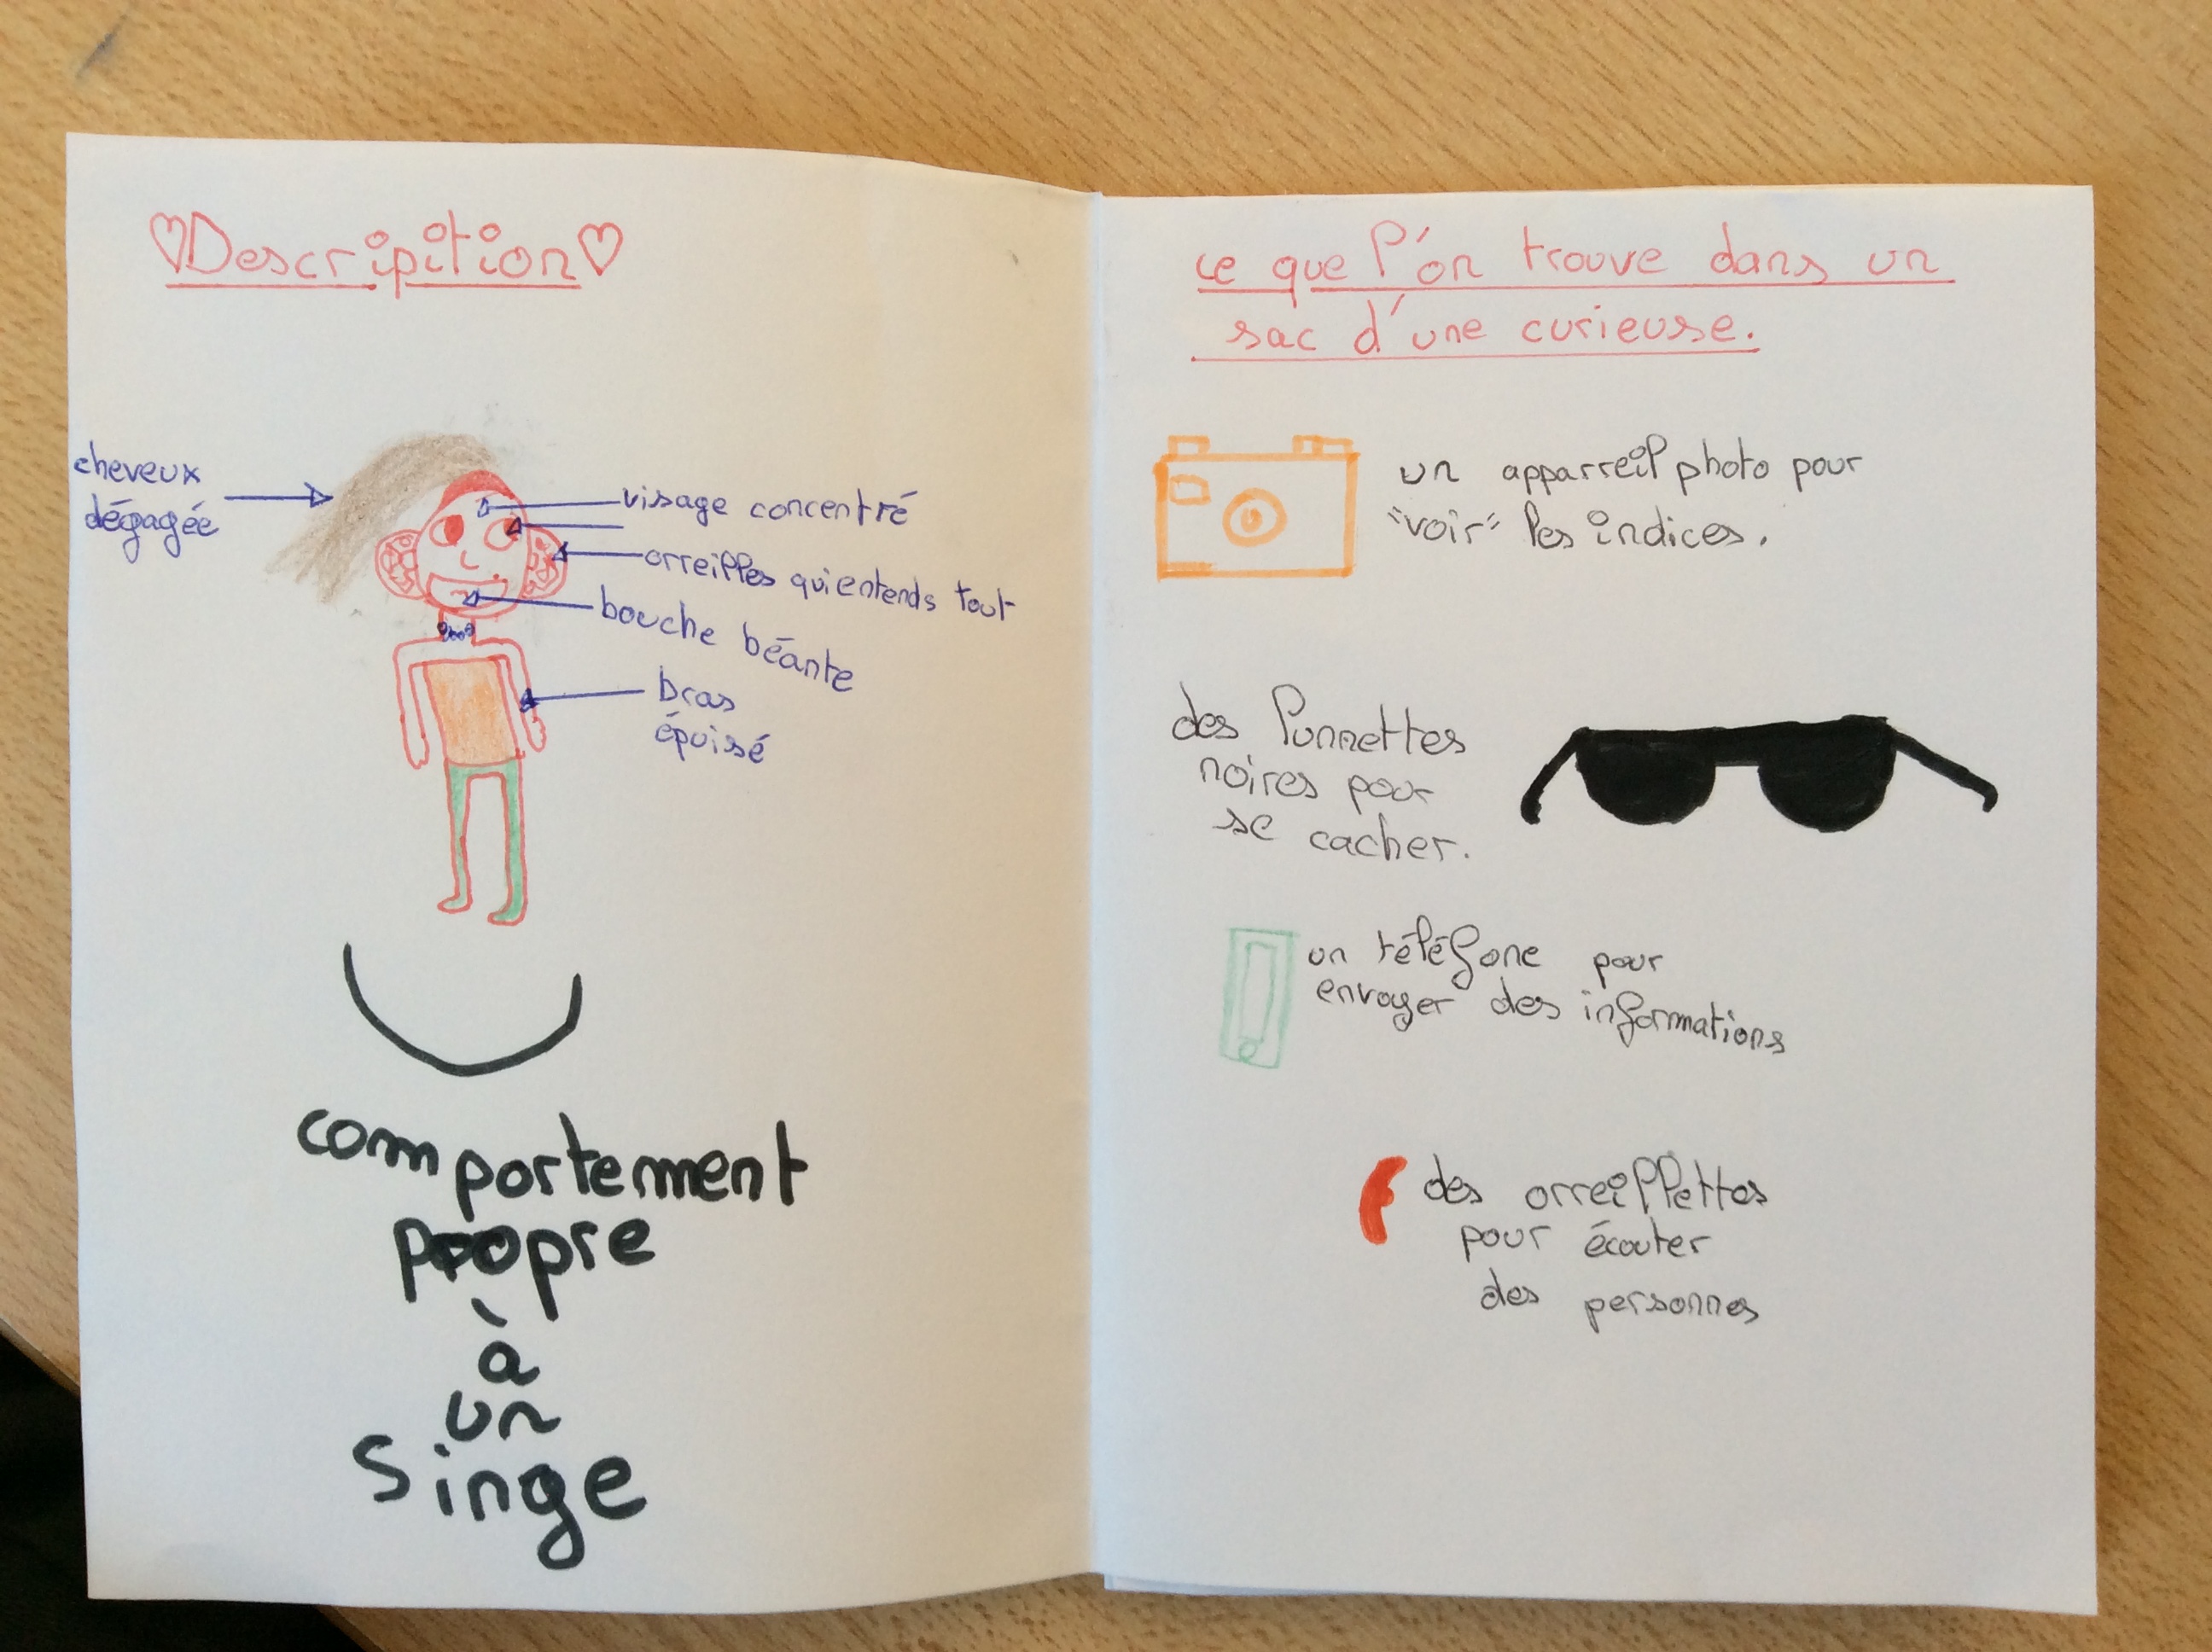 ♡Descripition♡
cheveux
dégagée
visage concentré
orreilles qui entends tout
bouche béante
bras
épuisé
comportement
propre
à
un
singe
ce que l'on trouve dans un
sac d'une curieuse.
un apparreil photo pour
"voir" les indices.
des lunnettes
noires pour
se cacher.
un téléfone pour
envoyer des informations
des orreillettes
pour écouter
des personnes